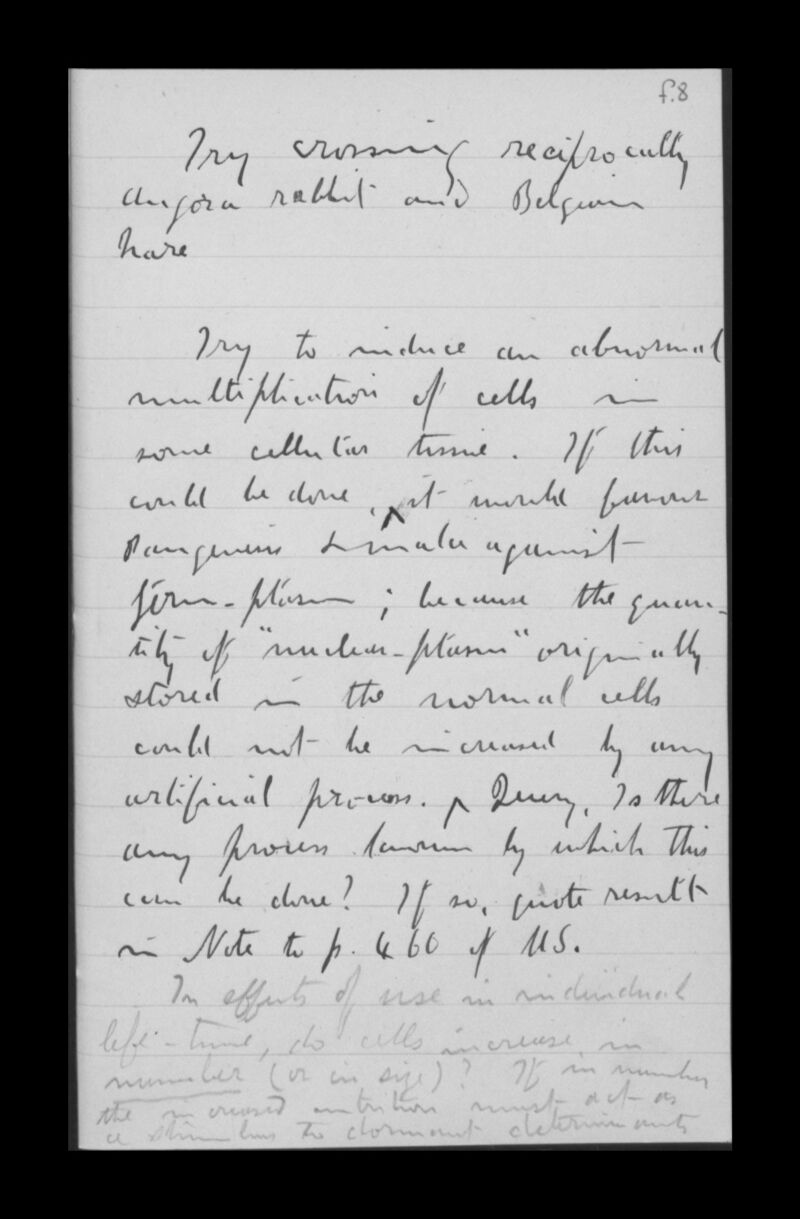 f.8
Try crossing reciprocally
Angora rabbit and Belgian
hare
Try to induce an abnormal
multiplication of cells in
some cellular tissue. If this
could be done, it would favour
Pangenesis against
germ-plasm; because the quan-
tity of "nuclear-plasm" originally
stored in the normal cells
could not be increased by any
artificial process. Query, Is there
any process known by which this
can be done? If so, quote result
in Note to p. 460 of MS.
In effects of use in individual
life-time, do cells increase in
number (or in size)? If in number
the increased nutrition must act as
a stimulus to dormant determinants